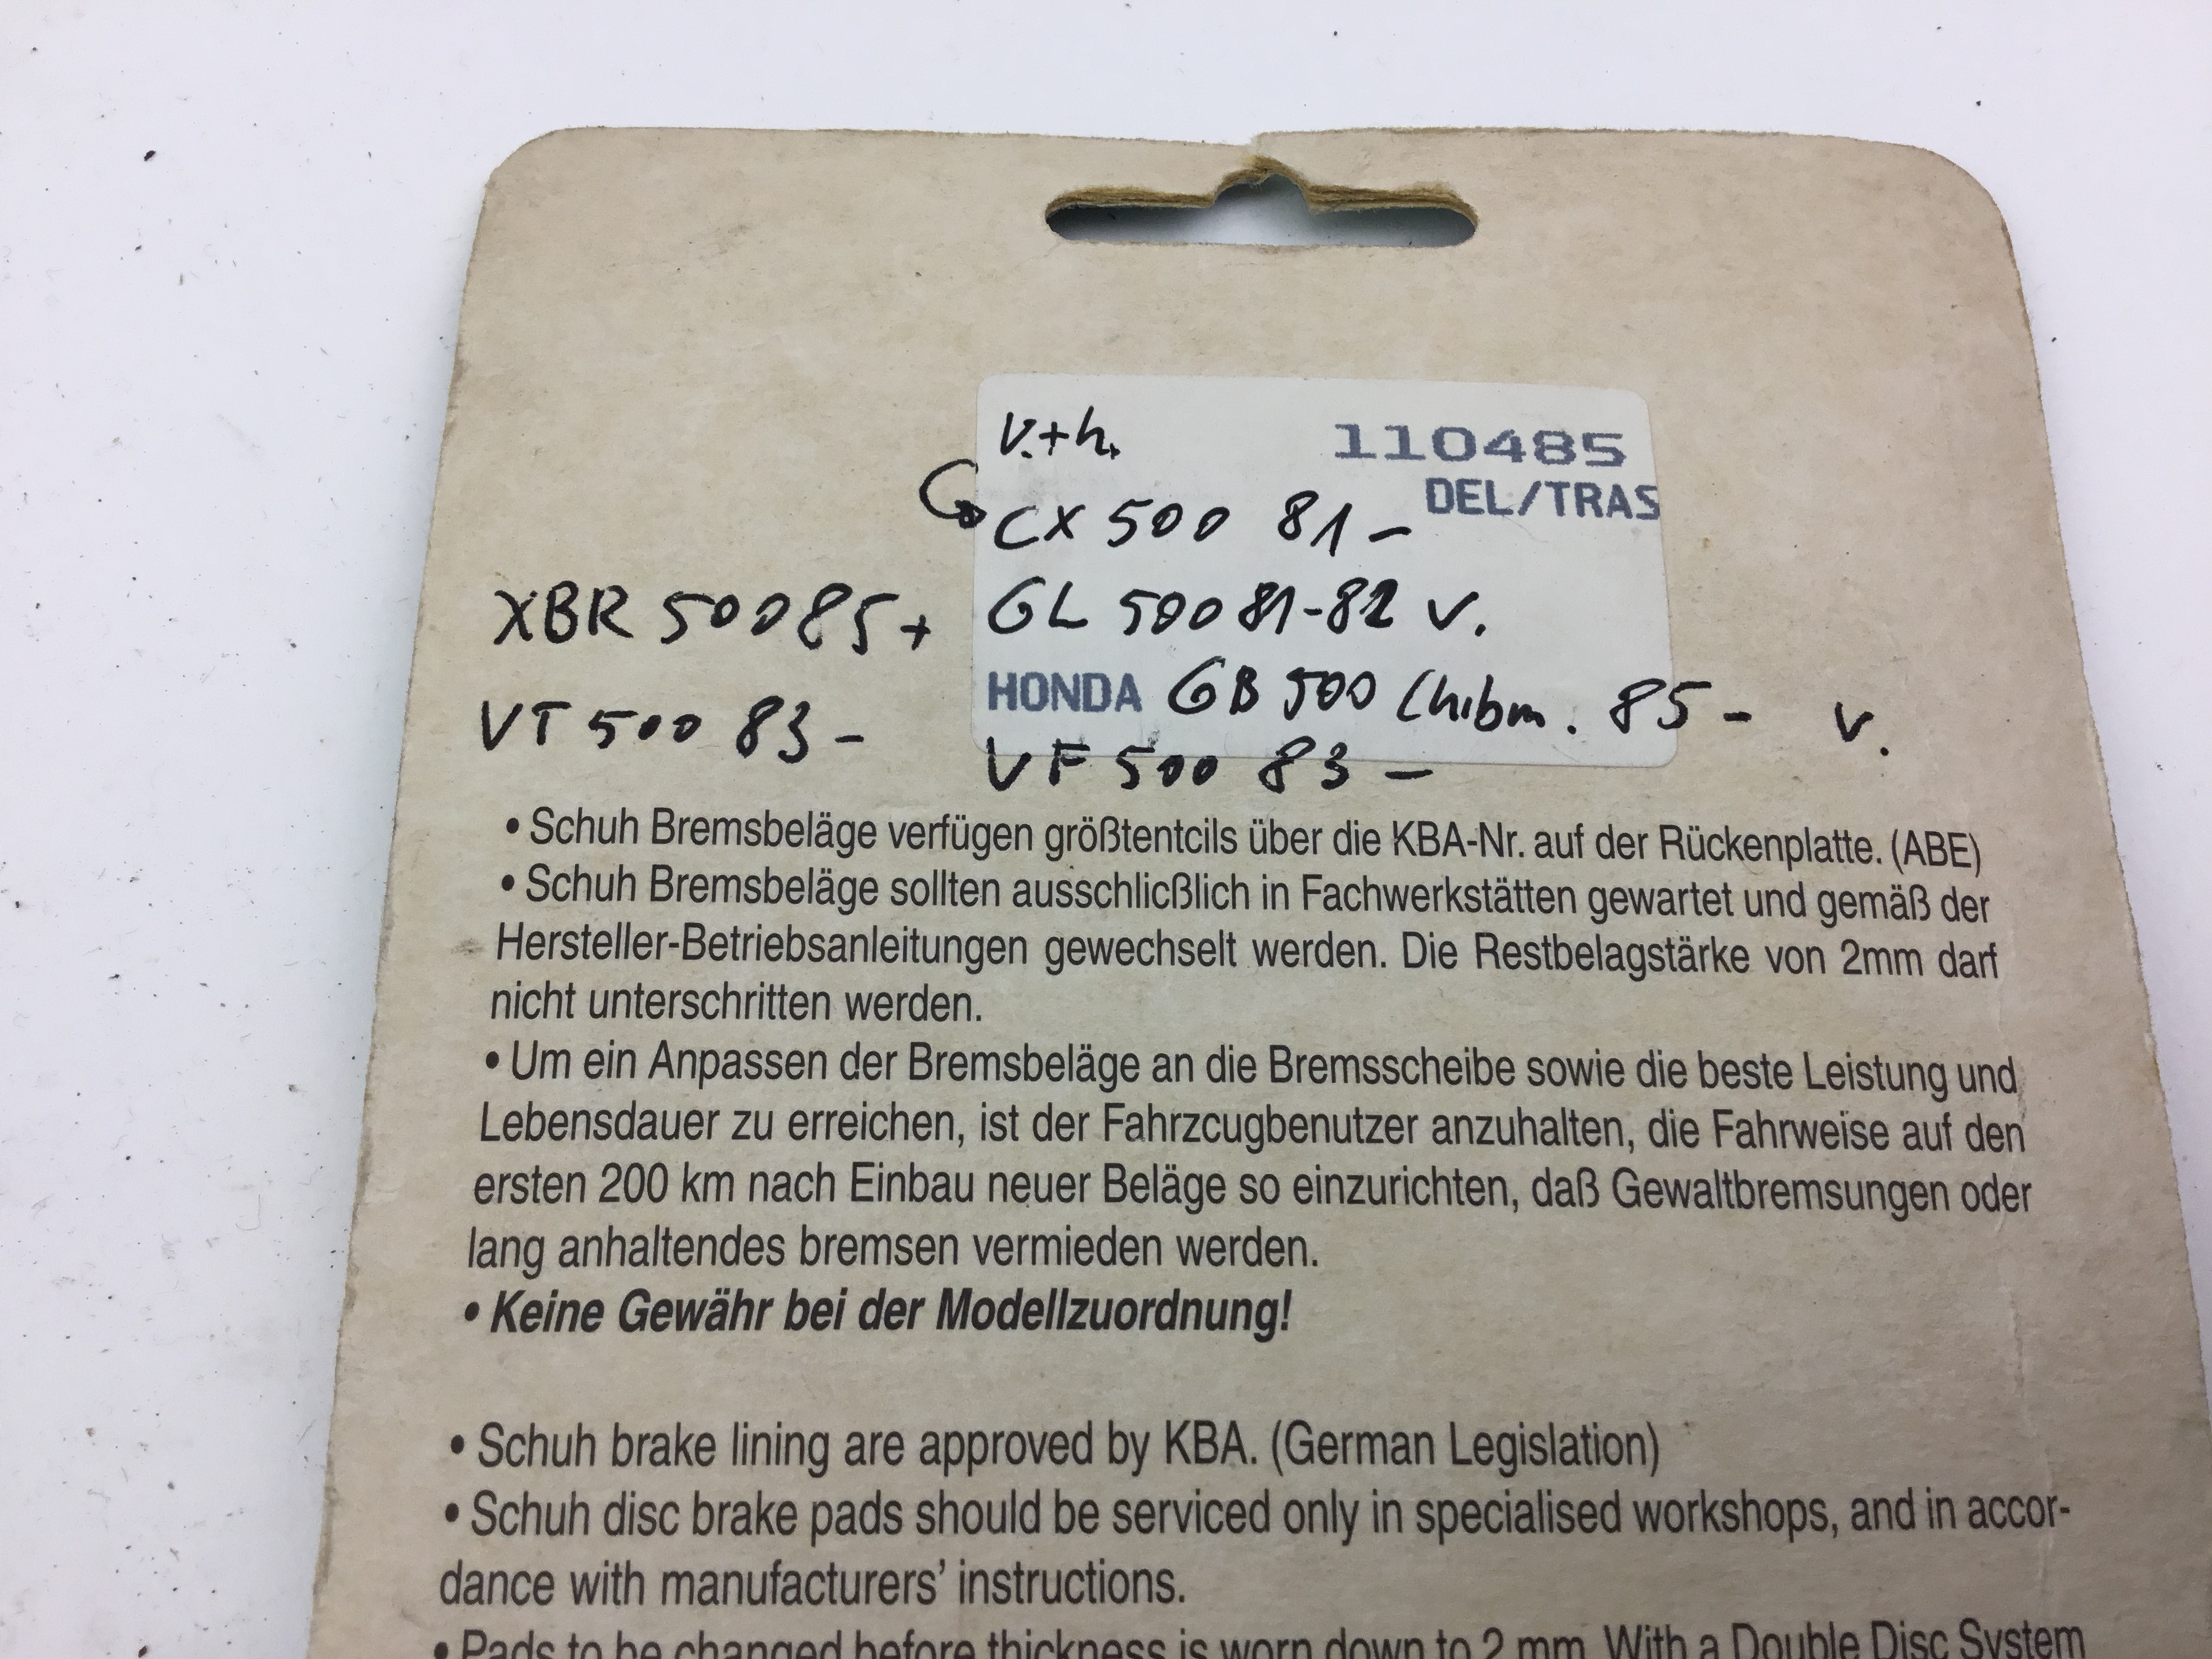 v.+h.
110485
DEL/TRAS
CX 500 81-
XBR 500 85+
GL 500 81-82 v.
HONDA GB 500 85- v.
VT 500 83-
VF 500 83-
• Schuh Bremsbeläge verfügen größtentcils über die KBA-Nr. auf der Rückenplatte. (ABE)
• Schuh Bremsbeläge sollten ausschlicßlich in Fachwerkstätten gewartet und gemäß der
Hersteller-Betriebsanleitungen gewechselt werden. Die Restbelagstärke von 2mm darf
nicht unterschritten werden.
• Um ein Anpassen der Bremsbeläge an die Bremsscheibe sowie die beste Leistung und
Lebensdauer zu erreichen, ist der Fahrzcugbenutzer anzuhalten, die Fahrweise auf den
ersten 200 km nach Einbau neuer Beläge so einzurichten, daß Gewaltbremsungen oder
lang anhaltendes bremsen vermieden werden.
• Keine Gewähr bei der Modellzuordnung!
• Schuh brake lining are approved by KBA. (German Legislation)
• Schuh disc brake pads should be serviced only in specialised workshops, and in accor-
dance with manufacturers' instructions.
• Pads to be changed before thickness is worn down to 2 mm. With a Double Disc System